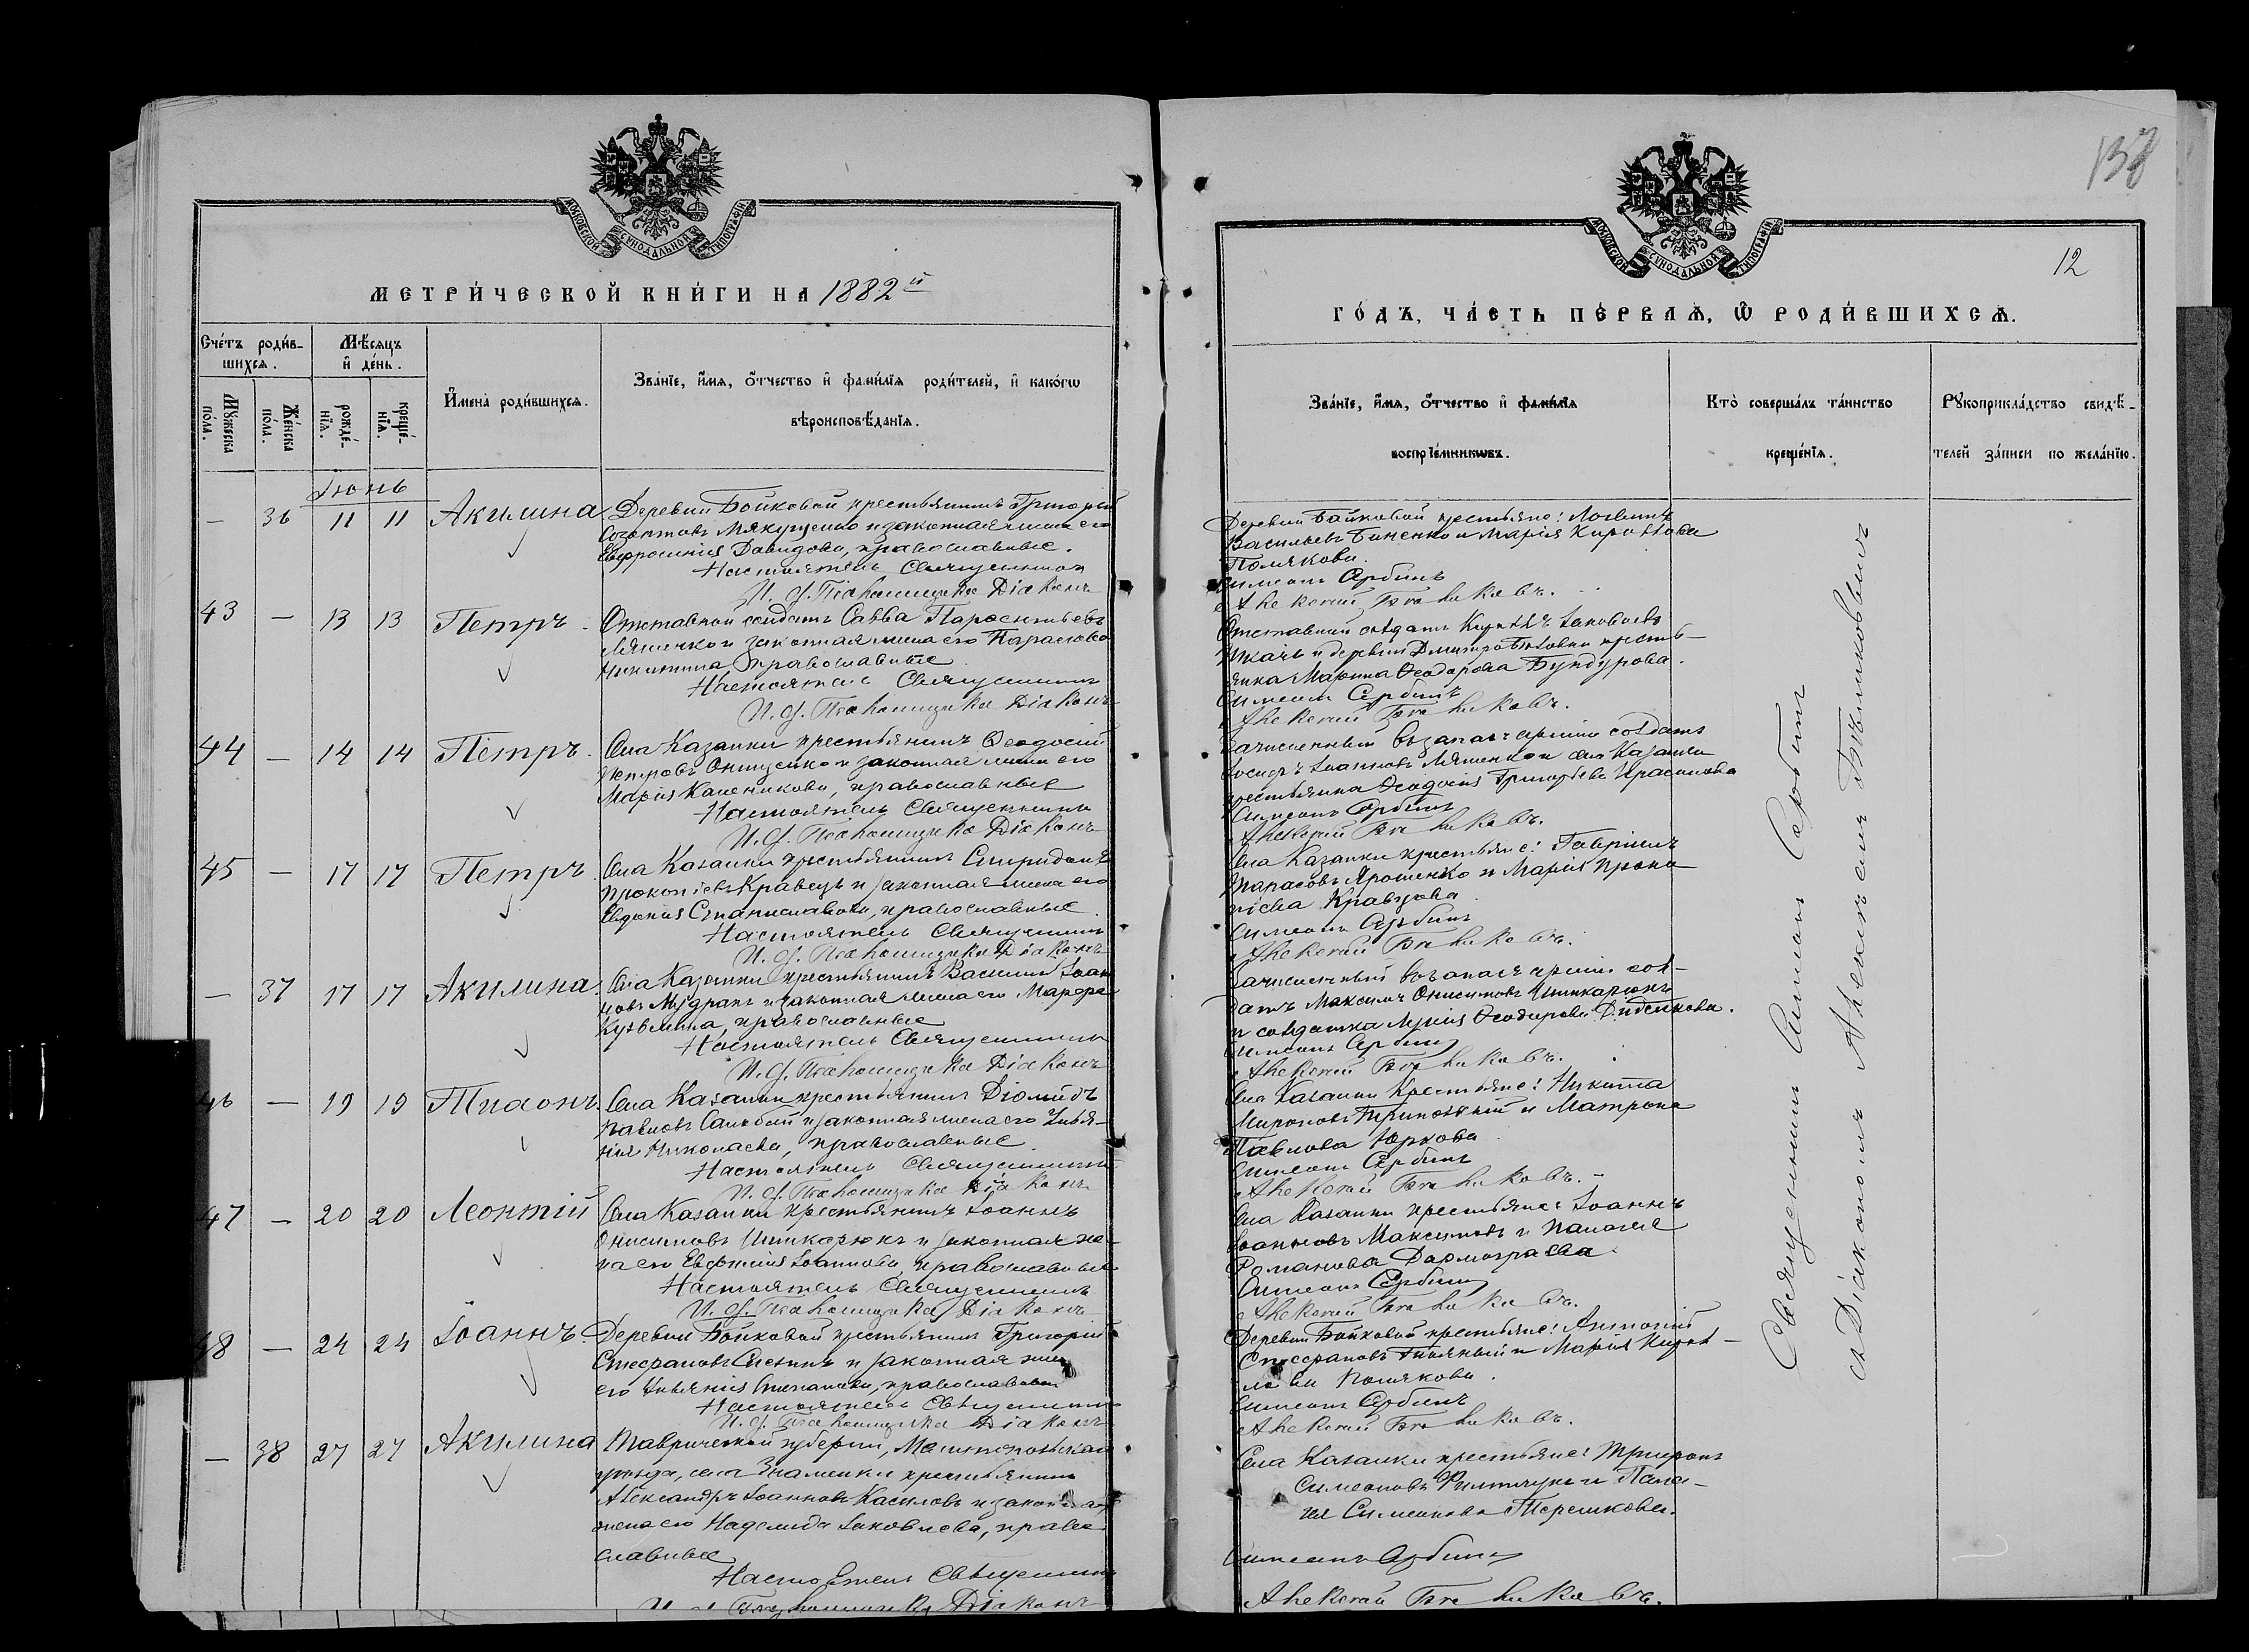 МОСКОВСКОЙ СУНОДАЛЬНОЙ ТИПОГРАФІИ
МЕТРИ́ЧЕСКОЙ КНИ́ГИ НА 1882й
Сче́тъ роди́в-
шихся.
Мѣсяцъ
и де́нь.
Мꙋжеска по́ла.
Же́нска по́ла.
рожде́-
нїя.
креще́-
нїя.
И҆мена̀ роди́вшихся.
Зва́нїе, и҆́мя, ѻ҆́тчество и҆ фами́лїя роди́телей, и҆ како́гѡ
вѣроисповѣ́данїя.
Іюнь
— 36 11 11 Акилина
Деревни Бойковой крестьянинъ Григорій
и законная жена его
Евфросинія Давидова, православные.
Настоятель Священникъ
И. д. Псаломщика Діаконъ
43 — 13 13 Петръ
Отставной солдатъ Савва
и законная жена его Параскева
Никитина православные
Настоятель Священникъ
И. д. Псаломщика Діаконъ
44 — 14 14 Петръ.
Села Казанки крестьянинъ Ѳеодосій
Петровъ и законная жена его
Марія православные
Настоятель Священникъ
И. д. Псаломщика Діаконъ
45 — 17 17 Петръ.
Села Казанки крестьянинъ Спиридонъ
Прокопіевъ Кравецъ и законная жена его
Евдокія Станиславова, православные.
Настоятель Священникъ
И. д. Псаломщика Діаконъ
— 37 17 17 Акилина.
Села Казанки крестьянинъ Василій Іоан
новъ и законная жена его Марфа
Кузьмина, православные
Настоятель Священникъ
И. д. Псаломщика Діаконъ
46 — 19 19 Тихонъ.
Села Казанки крестьянинъ Діомидъ
Павловъ и законная жена его Улья-
нія Николаева, православные
Настоятель Священникъ
И. д. Псаломщика Діаконъ
47 — 20 20 Леонтій
Села Казанки крестьянинъ Іоаннъ
Онисимовъ Шинкарюкъ и законная же-
на его Евфимія Іоаннова, православные
Настоятель Священникъ
И. д. Псаломщика Діаконъ
48 — 24 24 Іоаннъ.
Деревни Бойковой крестьянинъ Григорій
Стефановъ и законная жена
его Ульянія Степанова, православные
Настоятель Священникъ
И. д. Псаломщика Діаконъ
— 38 27 27 Акилина
Таврической губерніи, Мелитопольскаго
уѣзда, села Знаменки крестьянинъ
Александръ Іоанновъ Касиловъ и законная
жена его Надежда Іаковлева, право
славные
Настоятель Священникъ
И. д. Псаломщика Діаконъ
138
МОСКОВСКОЙ СУНОДАЛЬНОЙ ТИПОГРАФІИ
12
ГО́ДЪ, ЧА́СТЬ ПЕ́РВАЯ, Ѡ҆ РОДИ́ВШИХСЯ.
Зва́нїе, и҆́мя, ѻ҆́тчество и҆ фами́лїя
воспрїе́мникѡвъ.
Кто̀ соверша́лъ та́инство
креще́нїя.
Рꙋкоприкла́дство свидѣ́-
телей за́писи по жела́нїю.
Деревни Бойковой крестьяне: Логвинъ
Васильевъ и Марія Кириллова
Полякова.
Симеонъ Сербинъ
Алексѣй Бѣликовъ.
Отставной солдатъ Кириллъ Іаковлевъ
Ткачъ и деревни крестья-
янка Марина Ѳеодорова Бундурова.
Симеонъ Сербинъ
Алексѣй Бѣликовъ.
Зачисленный въ запасъ арміи солдатъ
Іосифъ Іоанновъ Ляшенко и села Казанки
крестьянка Ѳеодосія Григорьева
Симеонъ Сербинъ
Алексѣй Бѣликовъ.
Села Казанки крестьяне: Гавріилъ
Тарасовъ Ярошенко и Марія Проко
піева Кравцова
Симеонъ Сербинъ
Алексѣй Бѣликовъ.
Зачисленный въ запасъ арміи сол-
датъ Максимъ Онисимовъ Шинкарюкъ
и солдатка Ѳеодорова Диденкова.
Симеонъ Сербинъ
Алексѣй Бѣликовъ.
Села Казанки Крестьяне: Никита
Мироновъ и Матрона
Павлова Юркова
Симеонъ Сербинъ
Алексѣй Бѣликовъ.
Села Казанки крестьяне: Іоаннъ
Іоанновъ Максимовъ и Пелагея
Романова Дармограева.
Симеонъ Сербинъ
Алексѣй Бѣликовъ.
Деревни Бойковой крестьяне: Антоній
Стефановъ и Марія Кирил-
лова Полякова.
Симеонъ Сербинъ
Алексѣй Бѣликовъ.
Села Казанки крестьяне: Трифонъ
Симеоновъ и Пела-
гея Симеонова Терешкова.
Симеонъ Сербинъ
Алексѣй Бѣликовъ.
Священникъ Симеонъ Сербинъ
съ Діакономъ Алексѣемъ Бѣликовымъ